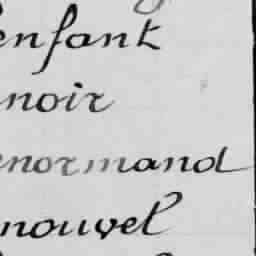 enfant
noir
normand
nouvel